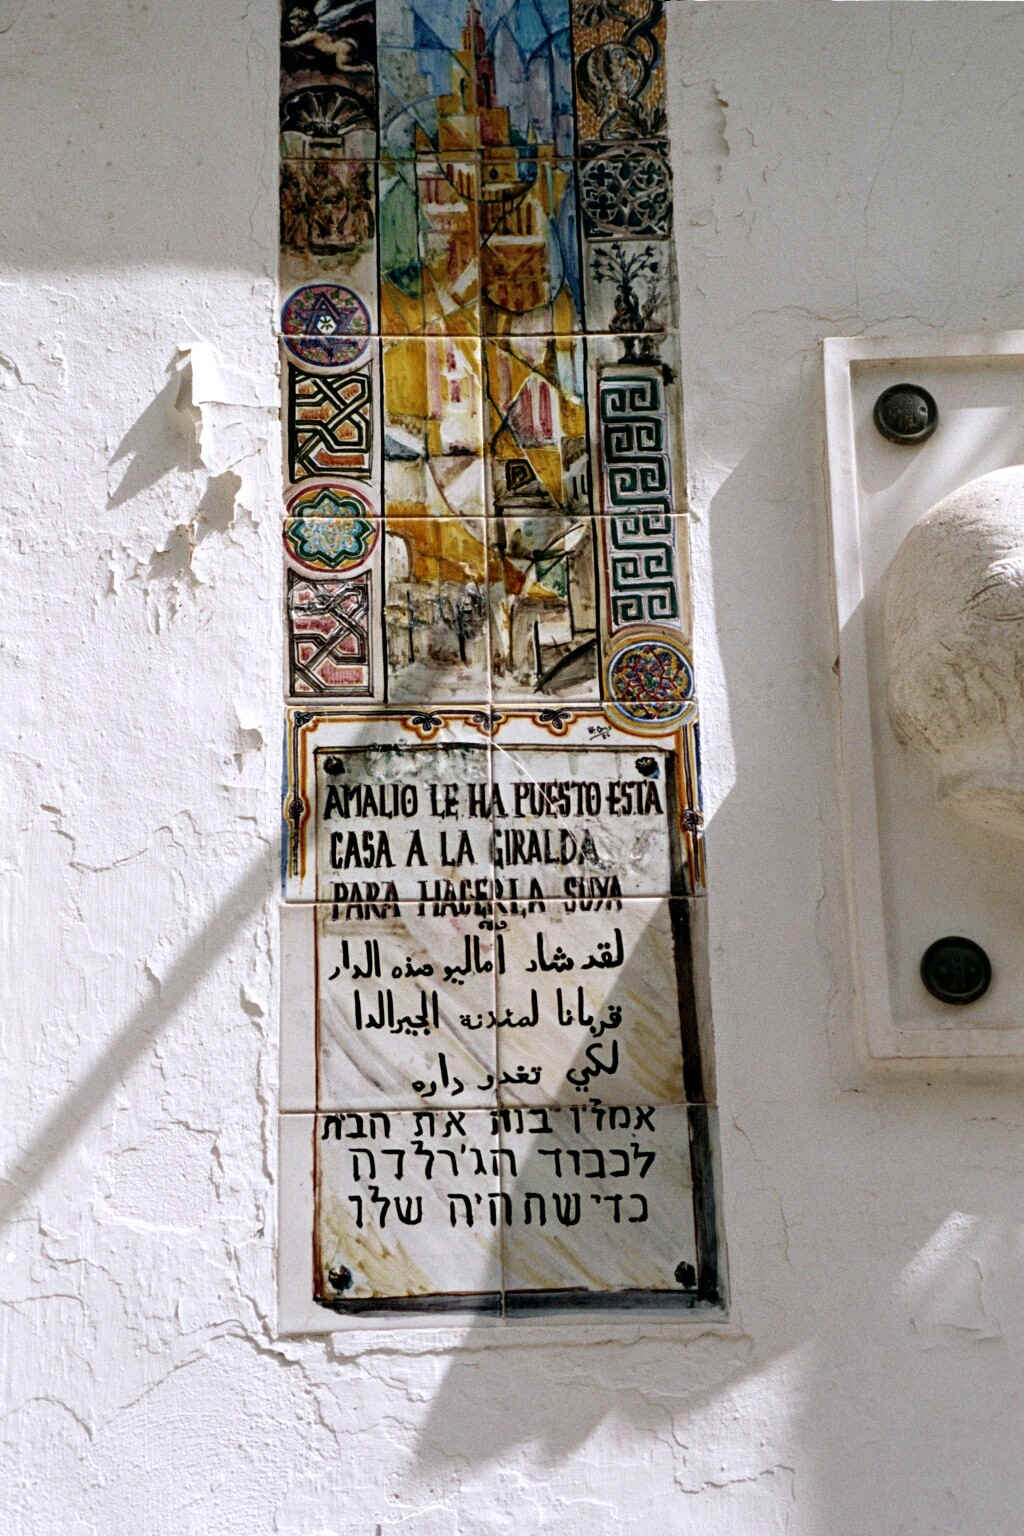 AMALIO LE HA PUESTO ESTA
CASA A LA GIRALDA
PARA HACERLA SUYA
لقد شاد اماليو هذه الدار
قربانا لمئذنة الجيرالدا
لكي تغدو داره
אמליו בנה את הבית
לכבוד הג'רלדה
כדי שתהיה שלו